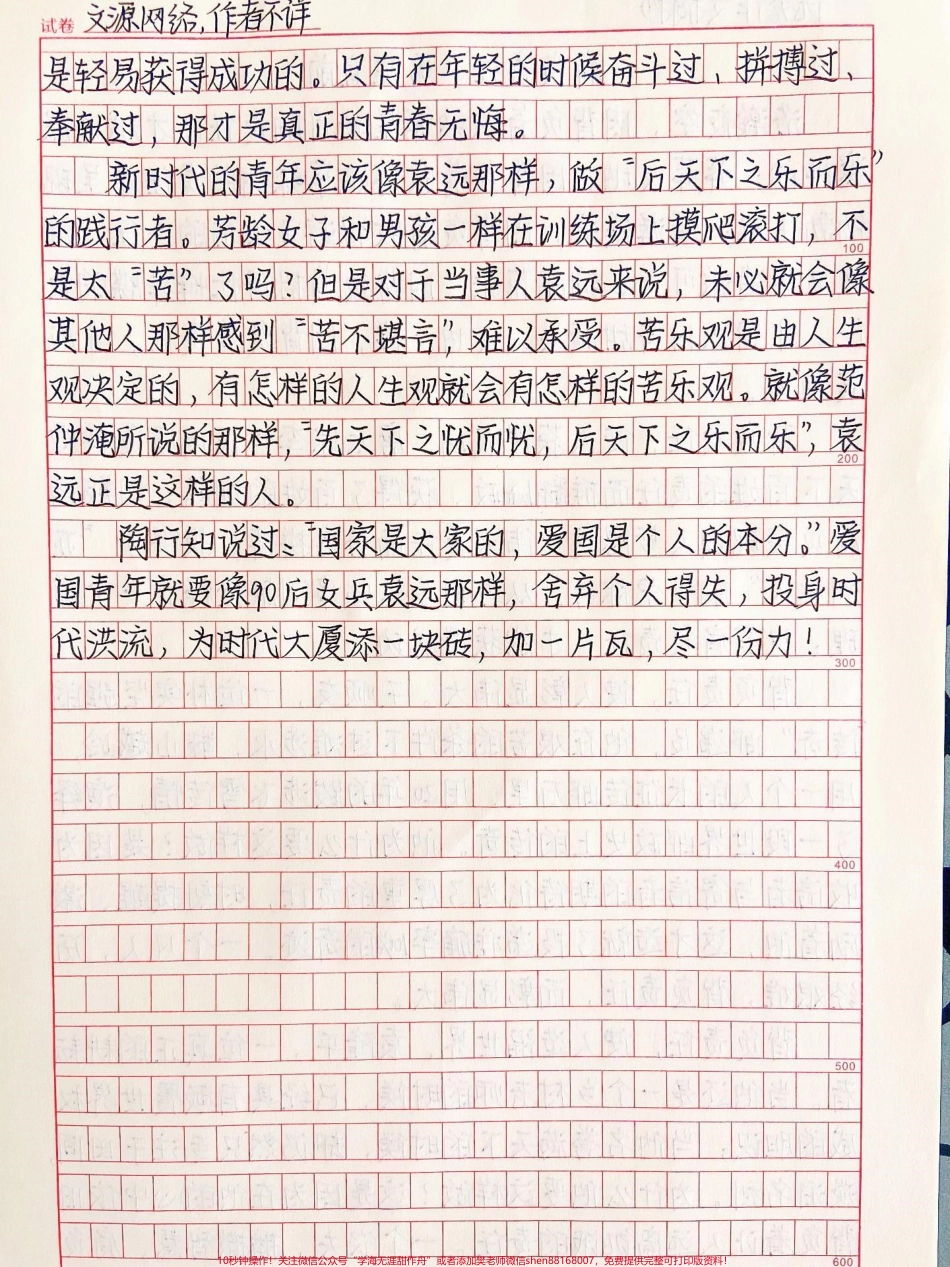 试卷 文源网络，作者不详
是轻易获得成功的。只有在年轻的时候奋斗过、拼搏过、
奉献过，那才是真正的青春无悔。
新时代的青年应该像袁远那样，做“后天下之乐而乐”
的践行者。芳龄女子和男孩一样在训练场上摸爬滚打，不
100
是太“苦”了吗？但是对于当事人袁远来说，未必就会像
其他人那样感到“苦不堪言”，难以承受。苦乐观是由人生
观决定的，有怎样的人生观就会有怎样的苦乐观。就像范
仲淹所说的那样，“先天下之忧而忧，后天下之乐而乐”，袁
200
远正是这样的人。
陶行知说过：“国家是大家的，爱国是个人的本分。”爱
国青年就要像90后女兵袁远那样，舍弃个人得失，投身时
代洪流，为时代大厦添一块砖，加一片瓦，尽一份力！
300
400
500
600
10秒钟操作！关注微信公众号“学海无涯甜作舟”或者添加樊老师微信shen88168007，免费提供完整可打印版资料！